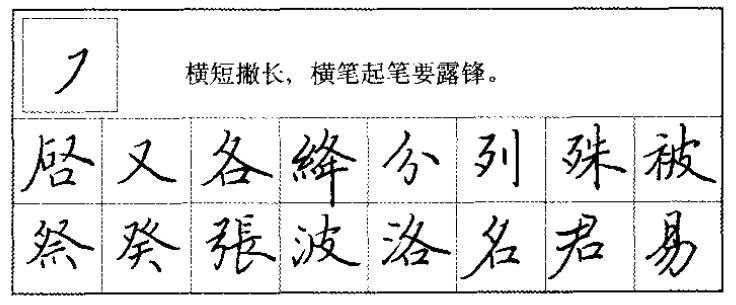 フ 横短撇长，横笔起笔要露锋。
啓又各絳分列殊被
祭癸張波洛名君易